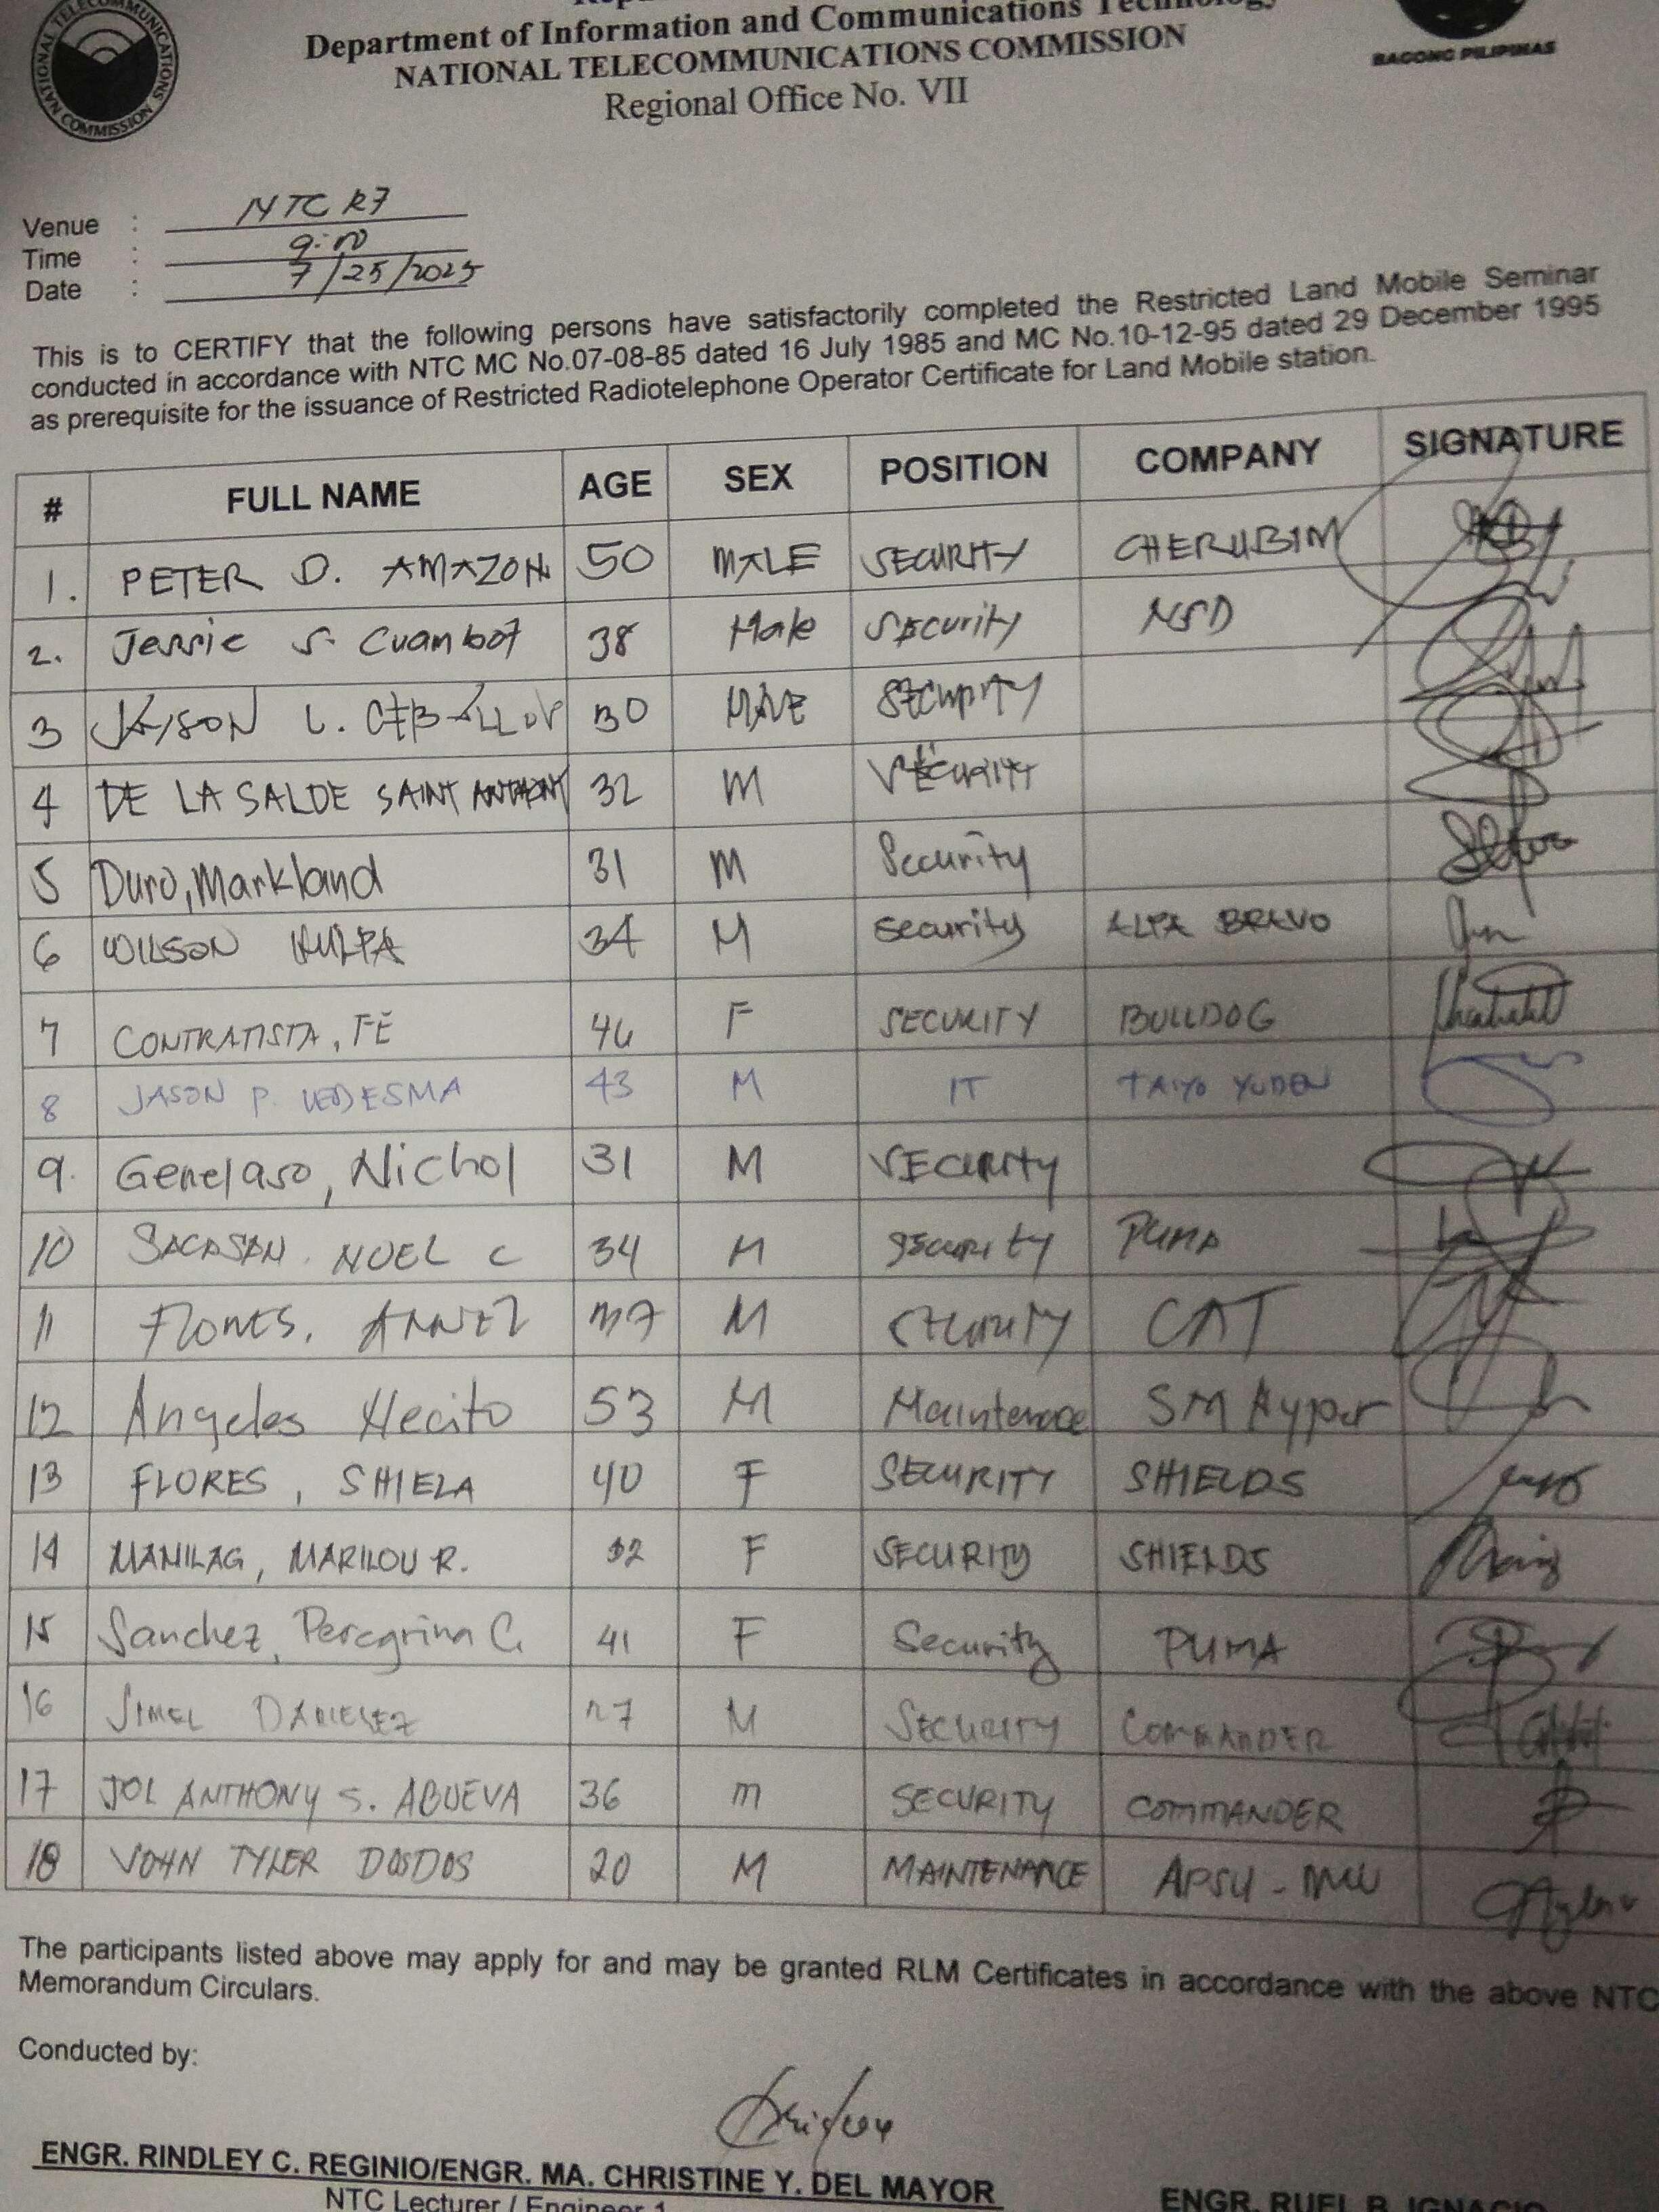 NATIONAL TELECOMMUNICATIONS COMMISSION
Department of Information and Communications Technology
NATIONAL TELECOMMUNICATIONS COMMISSION
Regional Office No. VII
BAGONG PILIPINAS
Venue : NTC R7
Time : 9:00
Date : 7/25/2025
This is to CERTIFY that the following persons have satisfactorily completed the Restricted Land Mobile Seminar
conducted in accordance with NTC MC No.07-08-85 dated 16 July 1985 and MC No.10-12-95 dated 29 December 1995
as prerequisite for the issuance of Restricted Radiotelephone Operator Certificate for Land Mobile station.
# FULL NAME AGE SEX POSITION COMPANY SIGNATURE
1. PETER D. AMAZON 50 MALE SECURITY CHERUBIM
2. Jessie S. Cuambot 38 Male Security NSD
3 JAYSON L. CEBALLOS 30 MALE SECURITY
4 DE LA SALDE SAINT ANTHONY 32 M SECURITY
5 Duro, Markland 31 M Security
6 WILSON 34 M Security ALPA BRAVO
7 CONTRATISTA, FE 46 F SECURITY BULLDOG
8 JASON P. LEDESMA 43 M IT TAIYO YUDEN
9. Genelaso, Nichol 31 M SECURITY
10 SACASAN NOEL C 34 M Security PUMA
11 FLORES, 37 M SECURITY CAT
12 Angeles Hecito 53 M Maintenace SM Hyper
13 FLORES, SHIELA 40 F SECURITY SHIELDS
14 MANILAG, MARILOU R. 32 F SECURITY SHIELDS
15 Sanchez, Peregrina C. 41 F Security PUMA
16 JIMEL DANIELEZ 27 M SECURITY COMMANDER
17 JOL ANTHONY S. ABUEVA 36 m SECURITY COMMANDER
18 JOHN TYLER DOSDOS 20 M MAINTENANCE APSU - MW
The participants listed above may apply for and may be granted RLM Certificates in accordance with the above NTC
Memorandum Circulars.
Conducted by:
ENGR. RINDLEY C. REGINIO/ENGR. MA. CHRISTINE Y. DEL MAYOR
NTC Lecturer / Engineer 1
ENGR. RUEL B. IGNACIO